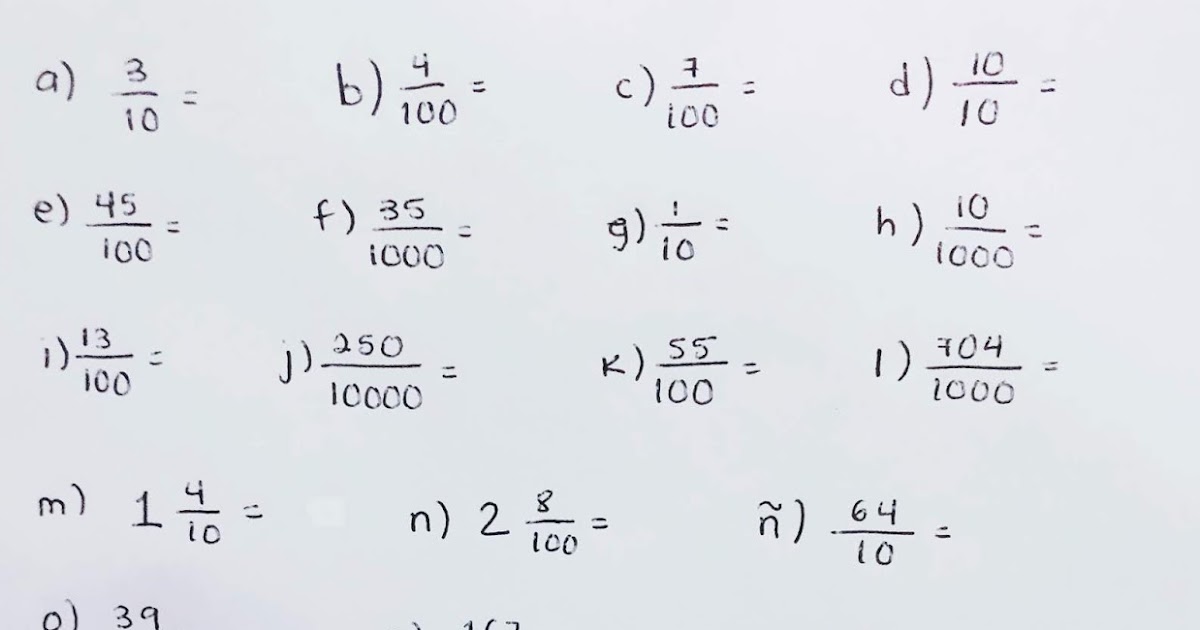 a) 3/10 = b) 4/100 = c) 7/100 = d) 10/10 =
e) 45/100 = f) 35/1000 = g) 1/10 = h) 10/1000 =
i) 13/100 = j) 250/10000 = k) 55/100 = l) 704/1000 =
m) 1 4/10 = n) 2 8/100 = ñ) 64/10 =
o) 39